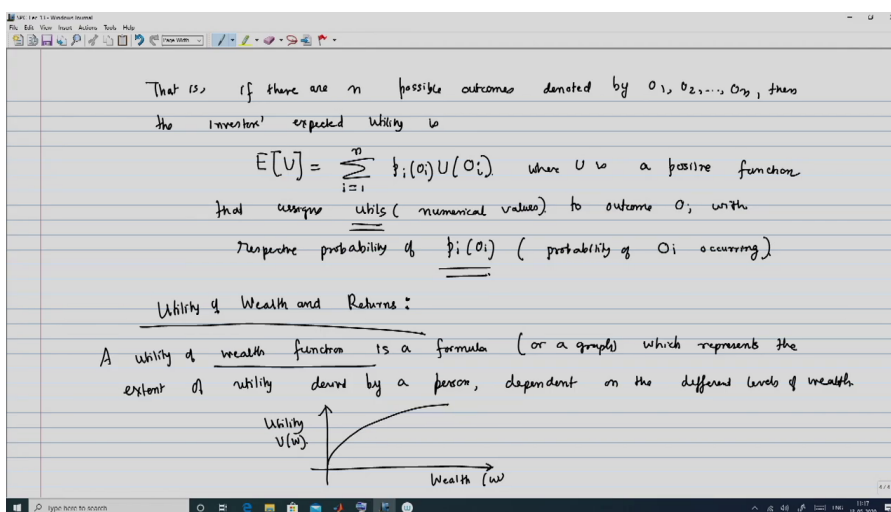 SPC Lec 13 - Windows Journal
File Edit View Insert Actions Tools Help
Page Width
That is, if there are n possible outcomes denoted by O1, O2, ..., On, then
the investors' expected utility is
E[U] = n∑i=1 pi(Oi) U(Oi) where U is a positive function
that assigns utils (numerical values) to outcome Oi with
respective probability of pi(Oi) (probability of Oi occurring)
Utility of Wealth and Returns:
A utility of wealth function is a formula (or a graph) which represents the
extent of utility derived by a person, dependent on the different levels of wealth.
Utility
U(W)
Wealth (W)
4/4
Type here to search
ENG 11:17